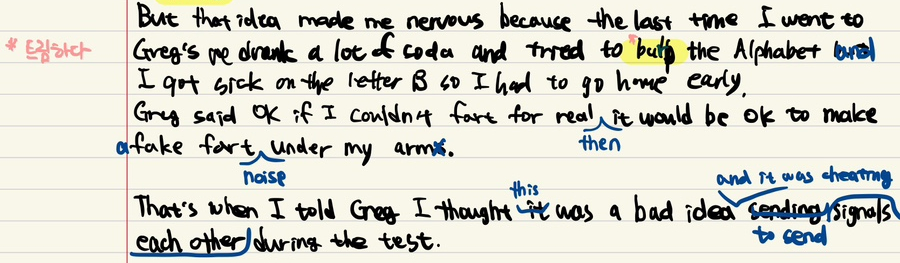 But that idea made me nervous because the last time I went to
* 트림하다 Greg's we drank a lot of coda and tried to bulp the Alphabet and
I got sick on the letter B so I had to go home early.
Greg said OK if I couldn't fart for real it would be ok to make
then
a fake fart under my arms.
noise
and it was cheating
this
That's when I told Greg I thought it was a bad idea sending signals
to send
each other during the test.